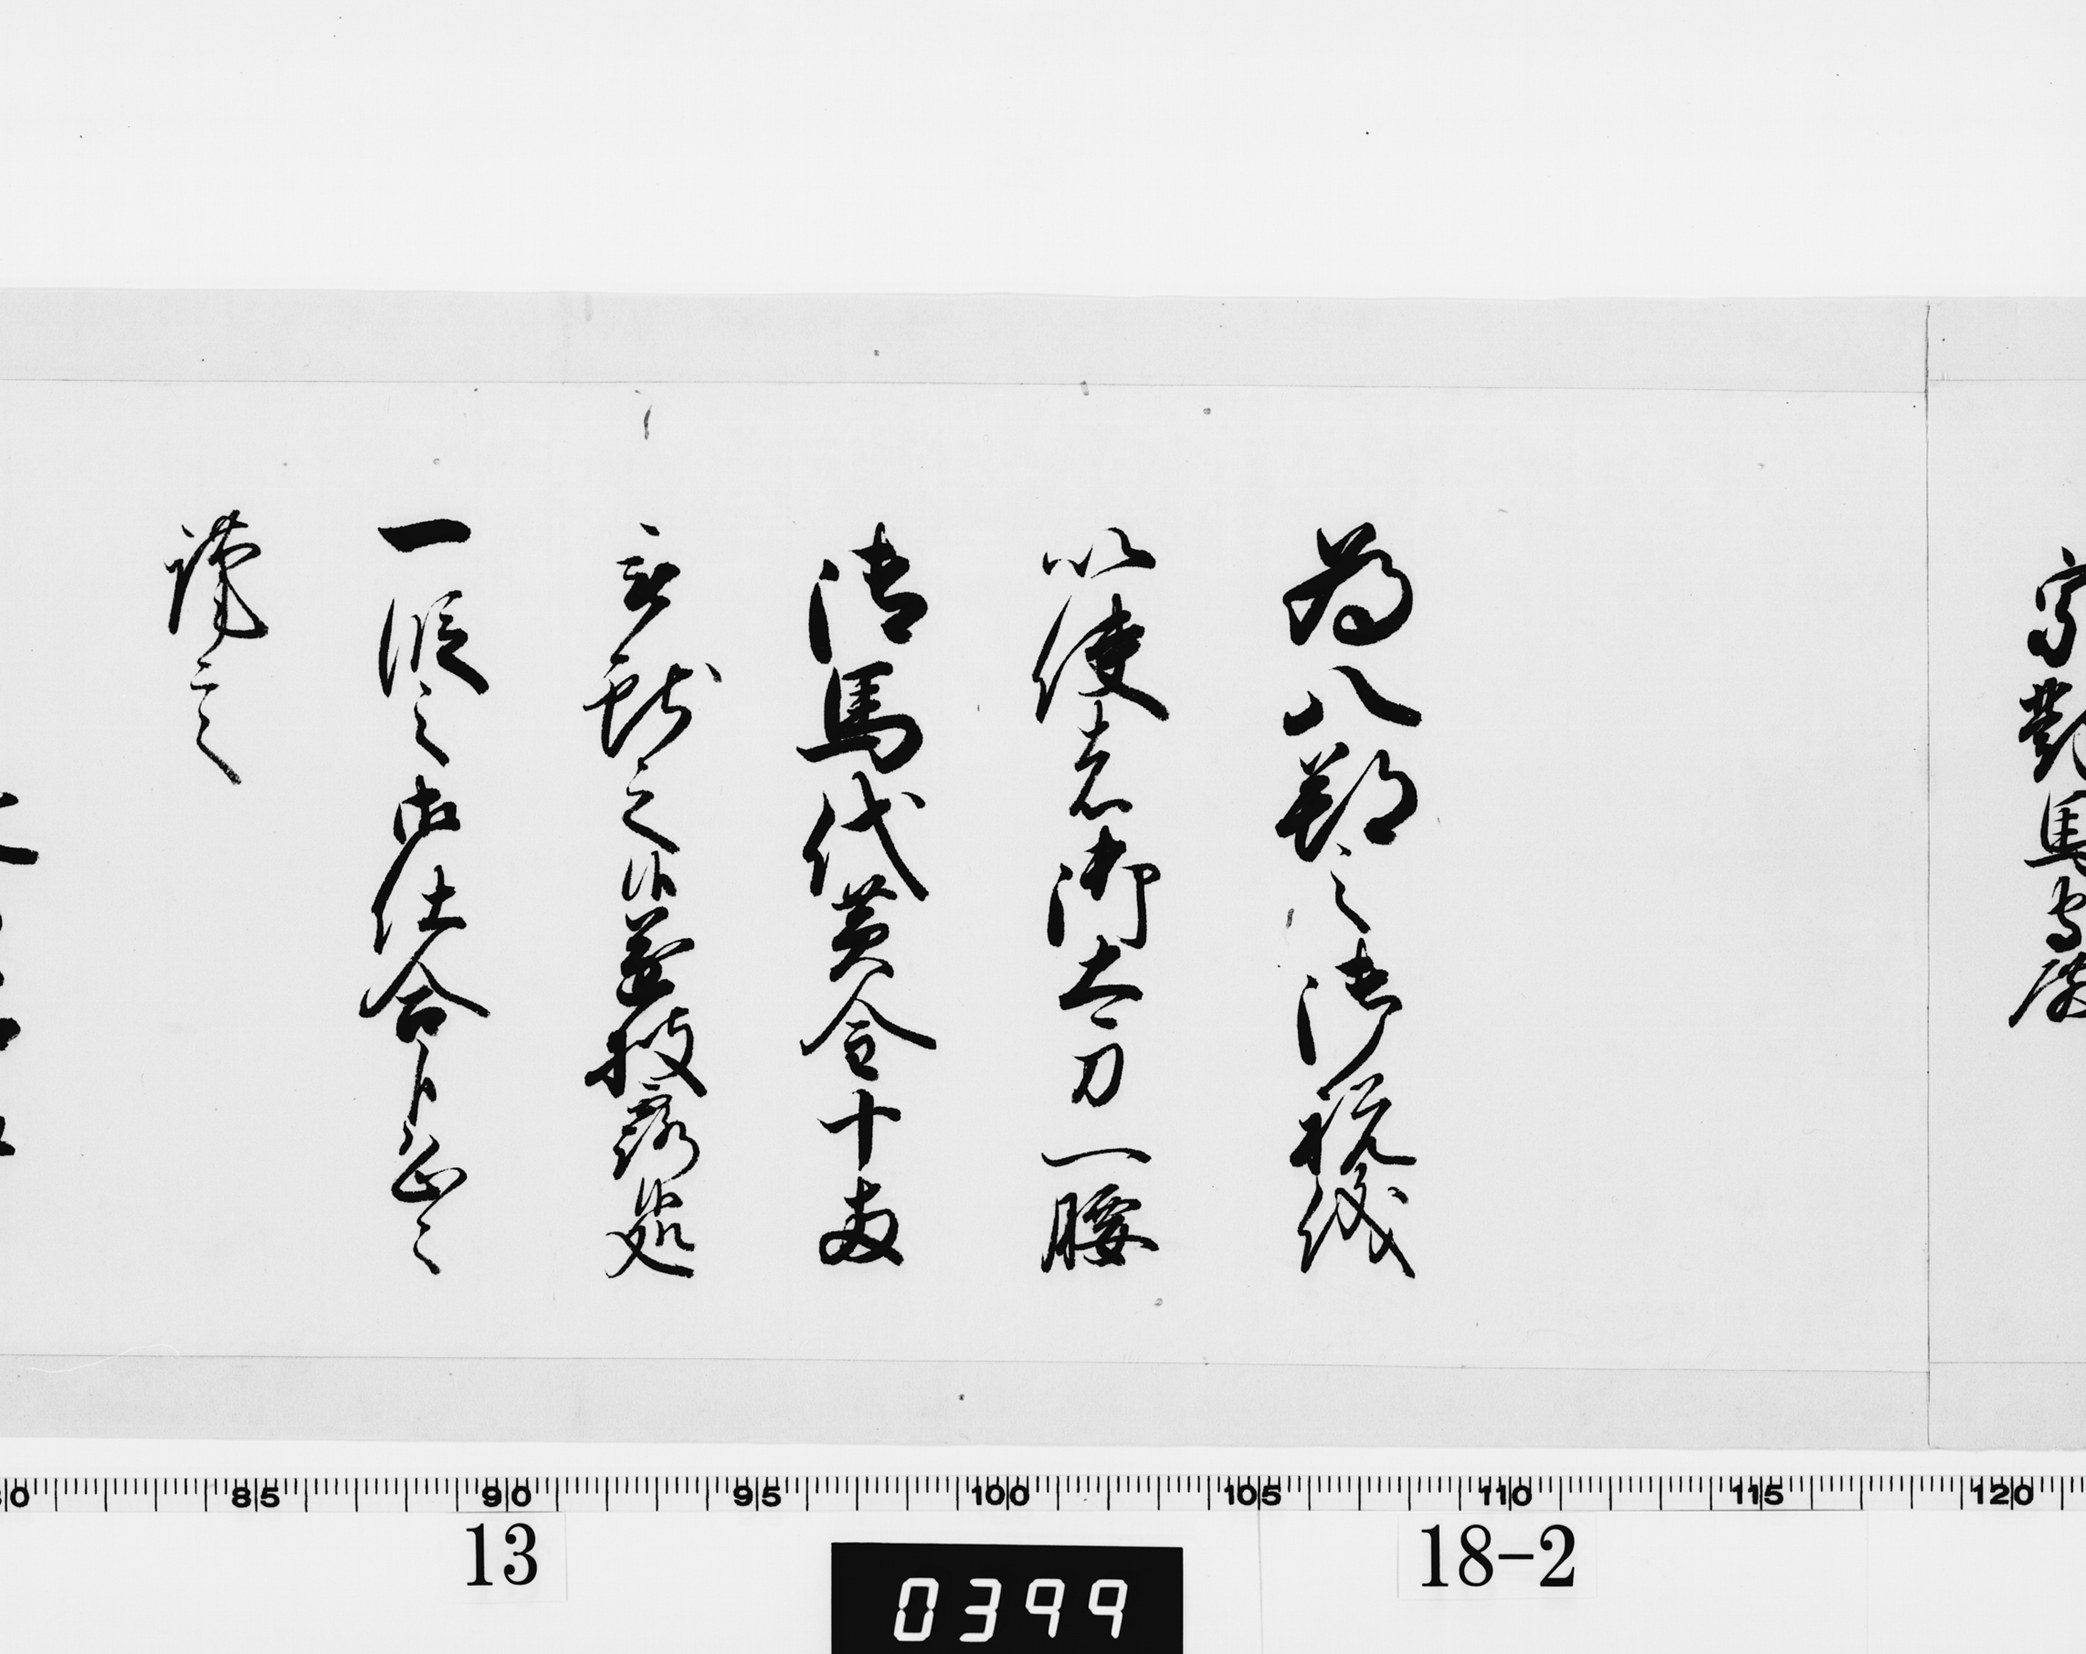 宗對馬守殿
為八朔之御祝儀
以使者御太刀一腰
御馬代黄金十両
被献之候遂披露処
一段之御仕合候恐々
謹言
85 90 95 100 105 110 115 120
13
18-2
0399